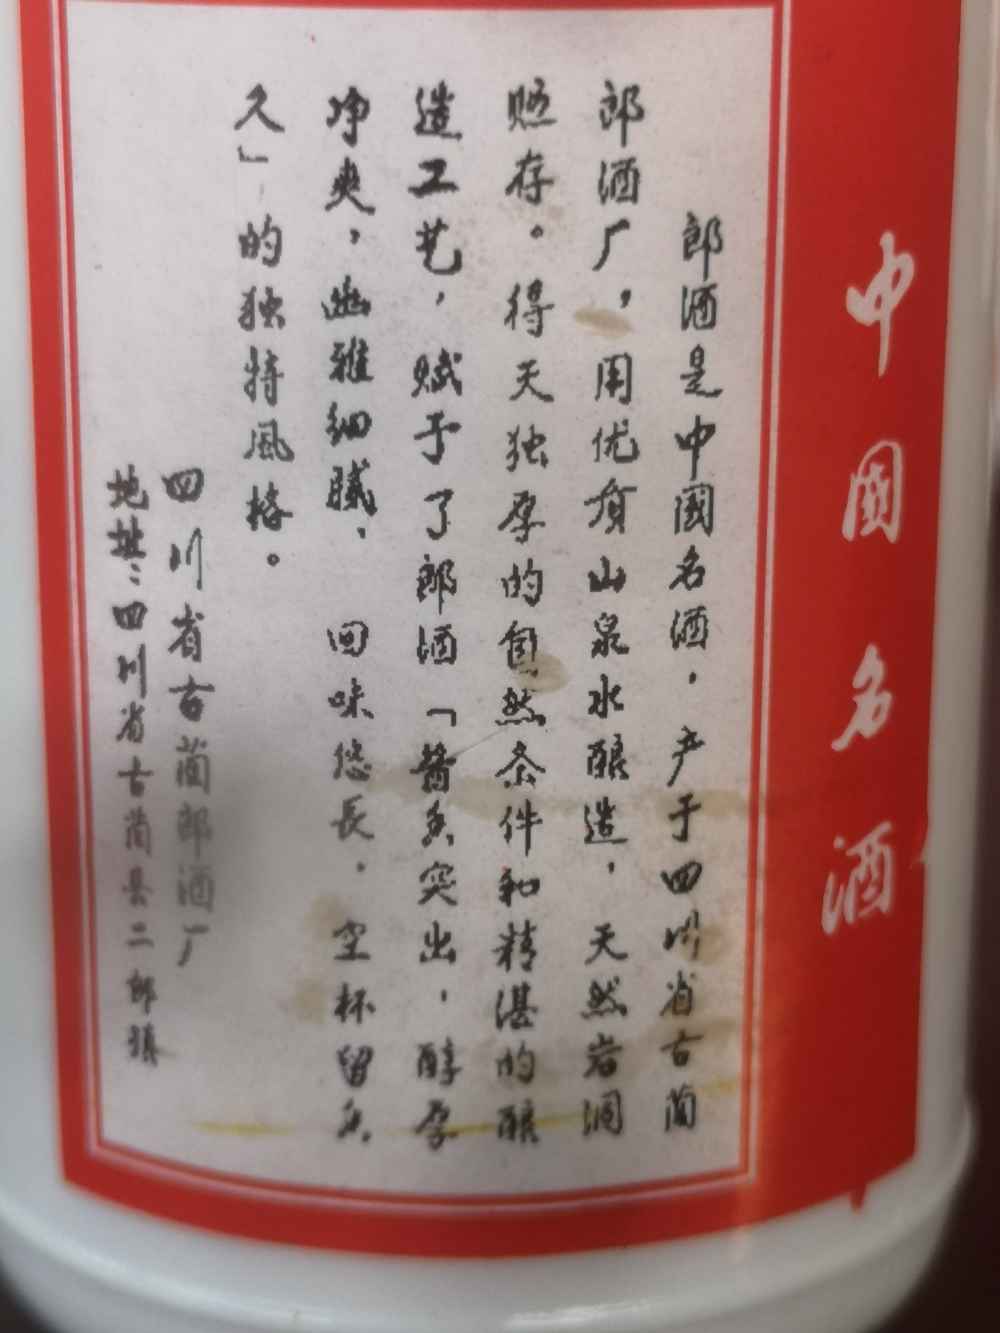 中國名酒
郎酒是中國名酒，产于四川省古蔺
郎酒厂，用优质山泉水酿造，天然岩洞
贮存。得天独厚的自然条件和精湛的酿
造工艺，赋予了郎酒「酱香突出，醇厚
净爽，幽雅细腻，回味悠長，空杯留香
久」的独特風格。
四川省古蔺郎酒厂
地址：四川省古蔺县二郎镇